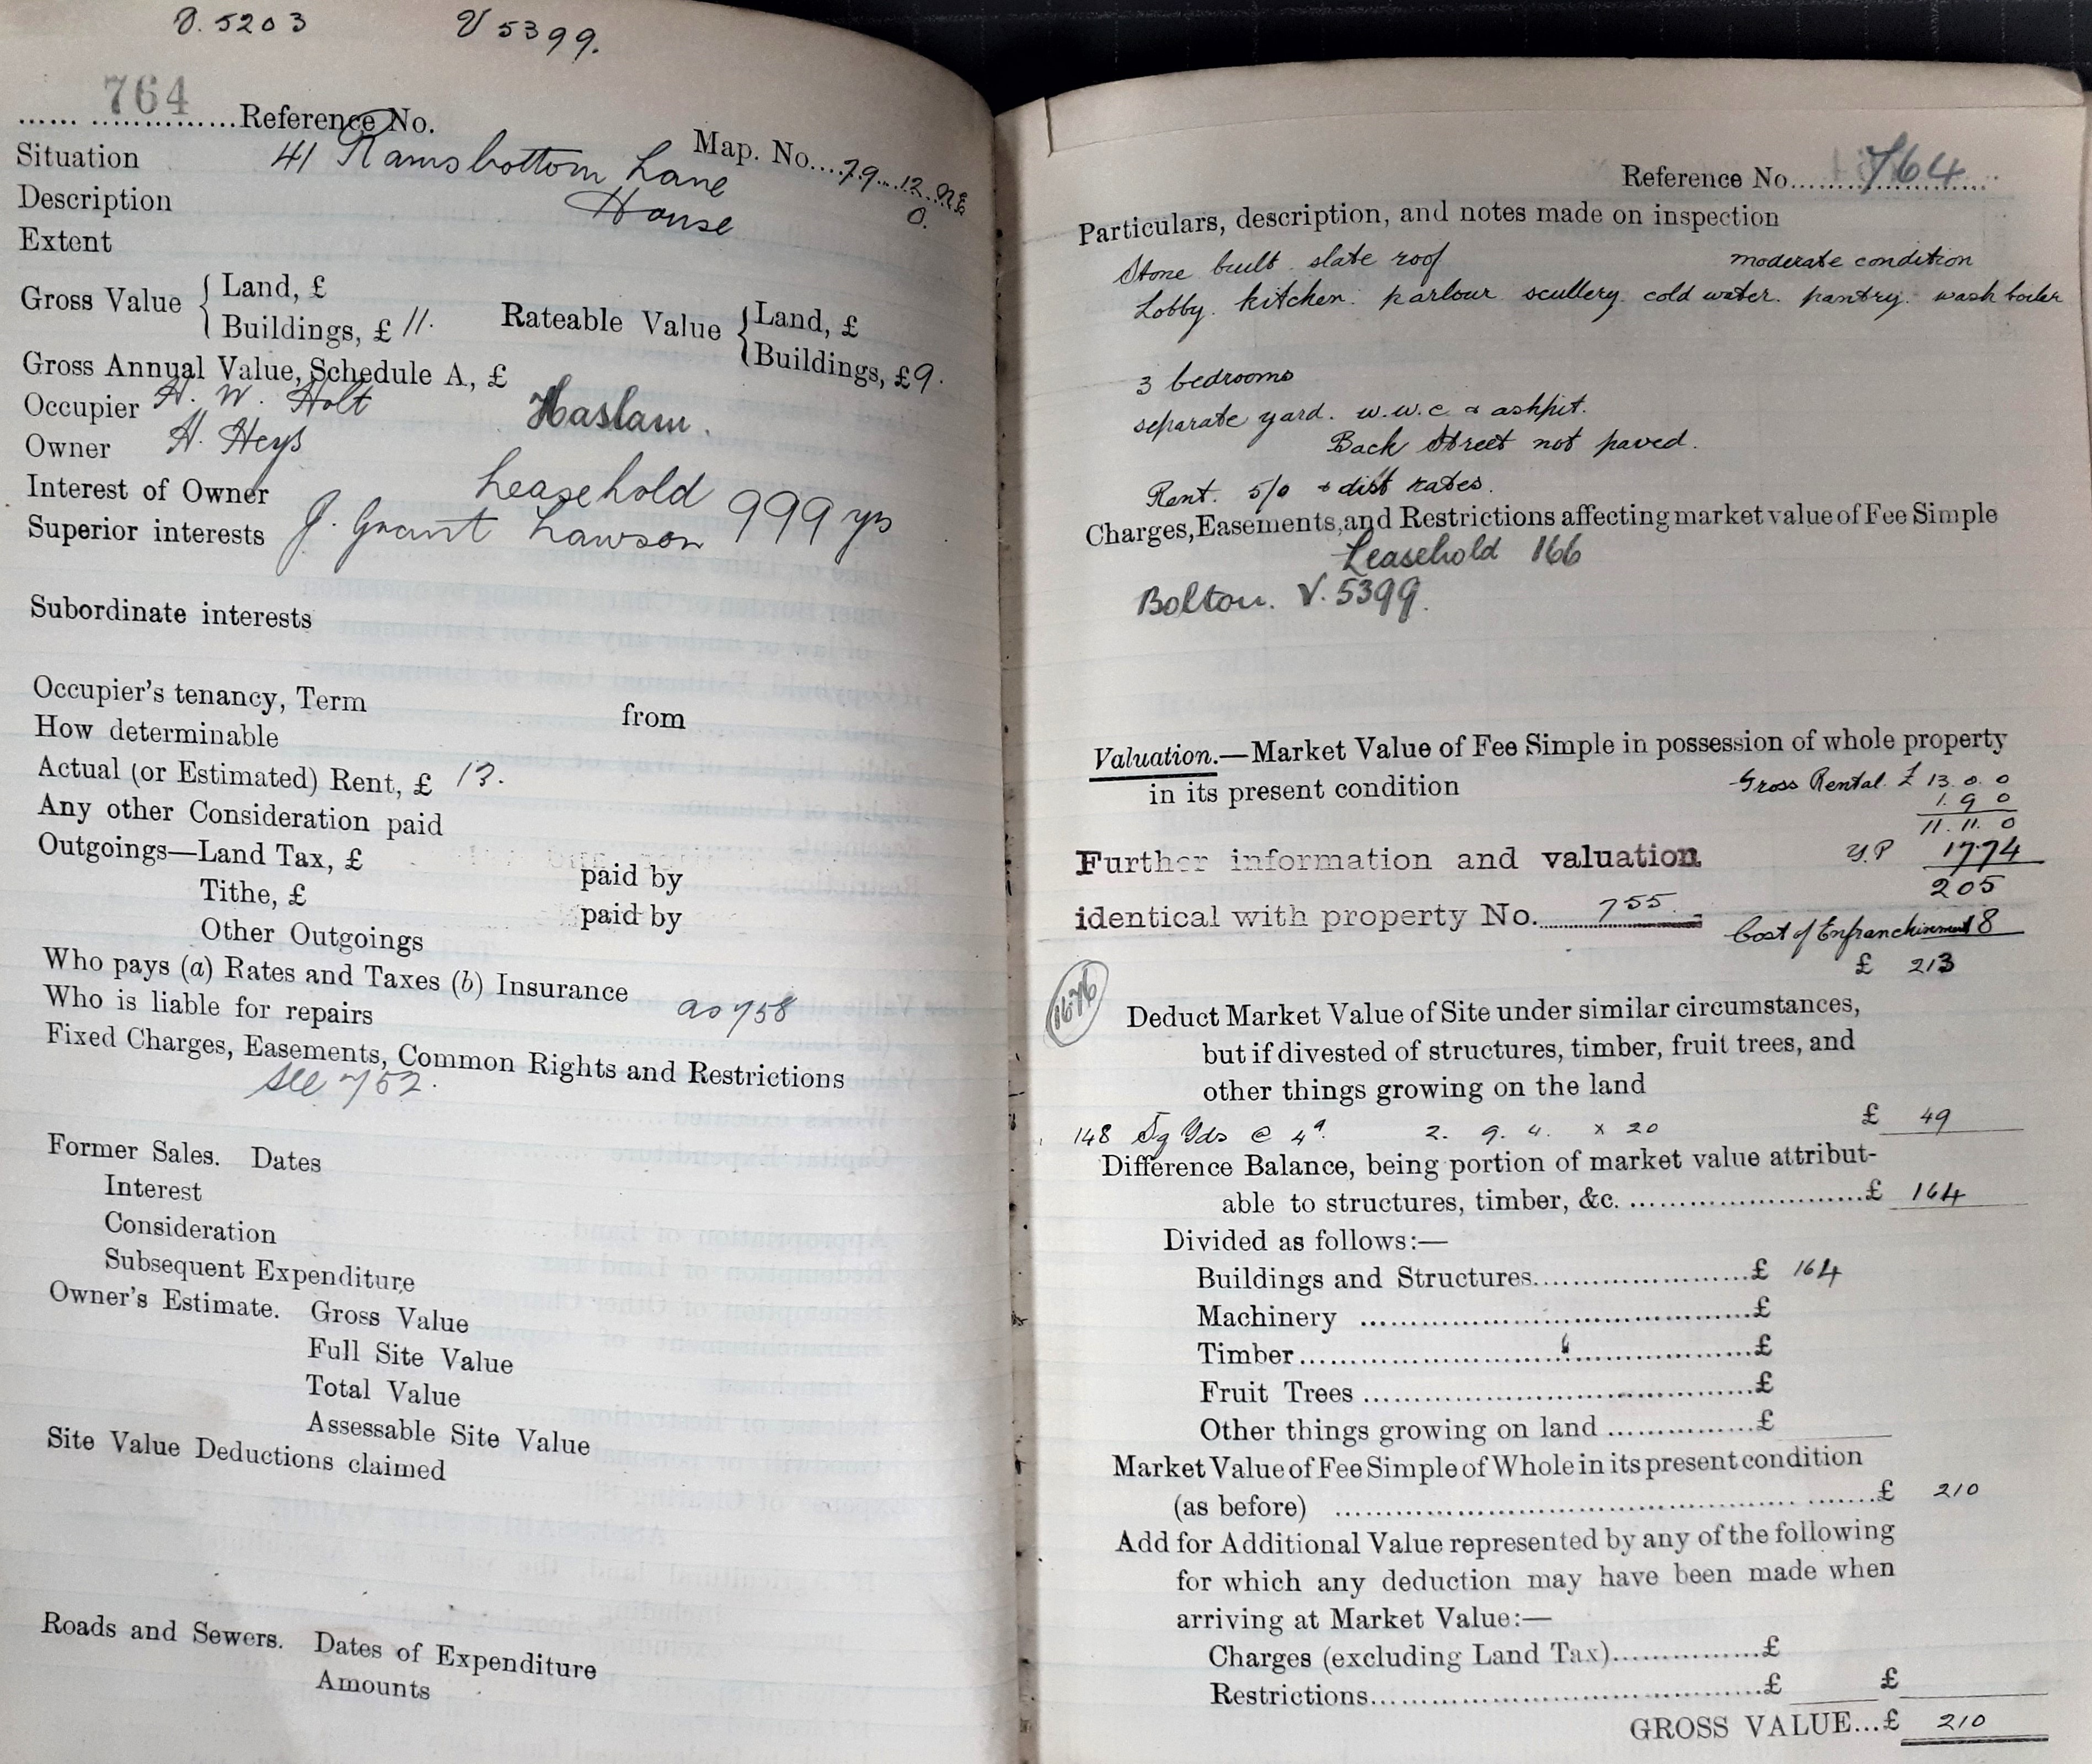 V. 5203 V 5399.
764 Reference No. Map. No. 79. 12. NE
Situation 41 Ramsbottom Lane 0.
Description House
Extent
Gross Value { Land, £
Buildings, £ 11. Rateable Value { Land, £
Buildings, £9.
Gross Annual Value, Schedule A, £
Occupier H. W. Holt Haslam.
Owner H. Heys
Interest of Owner Leasehold 999 yrs
Superior interests J. Grant Lawson
Subordinate interests
Occupier's tenancy, Term from
How determinable
Actual (or Estimated) Rent, £ 13.
Any other Consideration paid
Outgoings—Land Tax, £ paid by
Tithe, £ paid by
Other Outgoings
Who pays (a) Rates and Taxes (b) Insurance
Who is liable for repairs as 758
Fixed Charges, Easements, Common Rights and Restrictions
see 752.
Former Sales. Dates
Interest
Consideration
Subsequent Expenditure
Owner's Estimate. Gross Value
Full Site Value
Total Value
Assessable Site Value
Site Value Deductions claimed
Roads and Sewers. Dates of Expenditure
Amounts
Reference No. 764
Particulars, description, and notes made on inspection
Stone built. slate roof moderate condition
Lobby. kitchen. parlour scullery. cold water. pantry. wash boiler
3 bedrooms
separate yard. w.w.c & ashpit.
Back Street not paved.
Rent. 5/0 + dist rates.
Charges, Easements, and Restrictions affecting market value of Fee Simple
Leasehold 166
Bolton. V. 5399.
Valuation.—Market Value of Fee Simple in possession of whole property
in its present condition Gross Rental. £ 13. 0. 0
1. 9 0
11. 11. 0
Further information and valuation Y.P 17.74
205
identical with property No. 755. Cost of Enfranchisement 8
£ 213
1676
Deduct Market Value of Site under similar circumstances,
but if divested of structures, timber, fruit trees, and
other things growing on the land
148 Sq Yds @ 4d. 2. 9. 4. x 20 £ 49
Difference Balance, being portion of market value attribut-
able to structures, timber, &c. £ 164
Divided as follows:—
Buildings and Structures £ 164
Machinery £
Timber £
Fruit Trees £
Other things growing on land £
Market Value of Fee Simple of Whole in its present condition
(as before) £ 210
Add for Additional Value represented by any of the following
for which any deduction may have been made when
arriving at Market Value:—
Charges (excluding Land Tax) £
Restrictions £ £
GROSS VALUE...£ 210